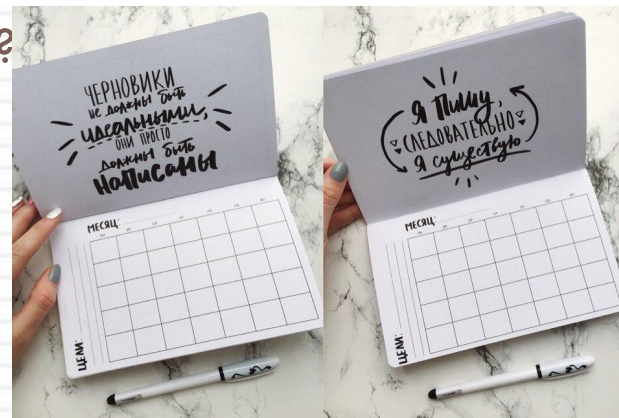 ЧЕРНОВИКИ
не должны быть
идеальными,
они просто
должны быть
написаны
МЕСЯЦ:
ЦЕЛИ:
Я пишу,
СЛЕДОВАТЕЛЬНО
я существую
МЕСЯЦ:
ЦЕЛИ: